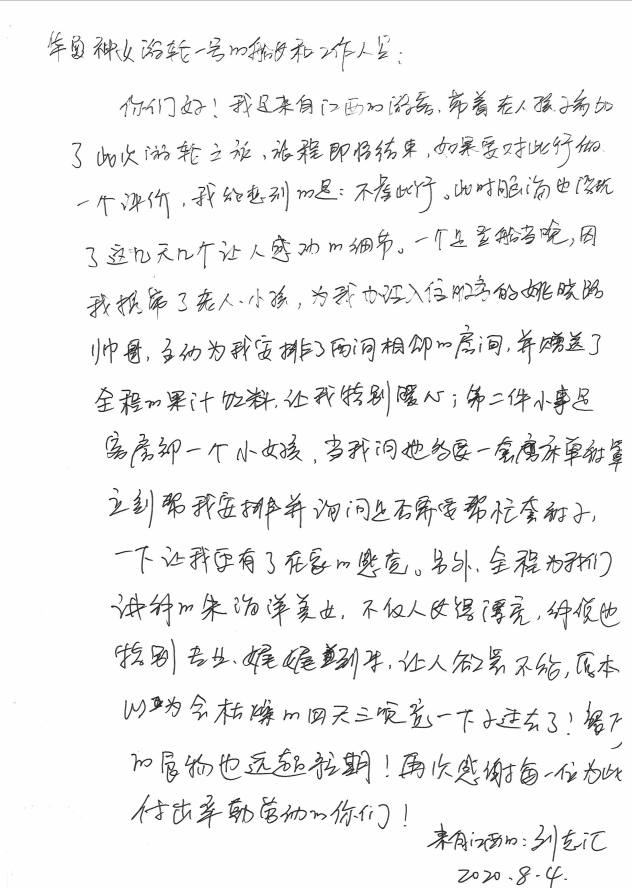 华夏神女游轮一号的船长和工作人员：
你们好！我是来自江西的游客，带着老人孩子参加
了此次游轮之旅，旅程即将结束，如果要对此行做
一个评价，我能想到的是：不虚此行。此时脑海也浮现
了这几天几个让人感动的细节。一个是登船当晚，因
我携带了老人、小孩，为我办证入住服务的姚晓路
帅哥，主动为我安排了两间相邻的房间，并赠送了
全程的果汁饮料，让我特别暖心；第二件小事是
客房部一个小女孩，当我问她多要一套床单被罩
立刻帮我安排并询问是否需要帮忙套被子，
一下让我更有了在家的感觉。另外，全程为我们
讲解的朱海洋美女，不仅人长得漂亮，解说也
特别专业、娓娓道来，让人应景不给，原本
以为会枯燥的四天三晚竟一下子过去了！留下
的宝物也远超预期！再次感谢每一位为此
付出辛勤劳动的你们！
来自江西的：刘志汇
2020.8.4.